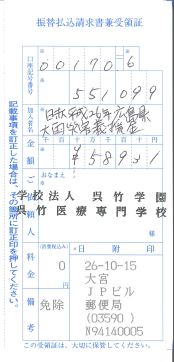 振替払込請求書兼受領証
口座記号番号
00170 6
551099
加入者名
日赤平成26年広島県
大雨災害義援金
金額
千 百 十 万 千 百 十 円
¥58931
おなまえ
ご依頼人
学校法人 呉竹学園
呉竹医療専門学校
様
料金
(消費税込み)
0
円
備考
免除
日附印
26-10-15
大宮
JPビル
郵便局
(03590 )
N94140005
記載事項を訂正した場合は、その箇所に訂正印を押してください。
この受領証は、大切に保管してください。